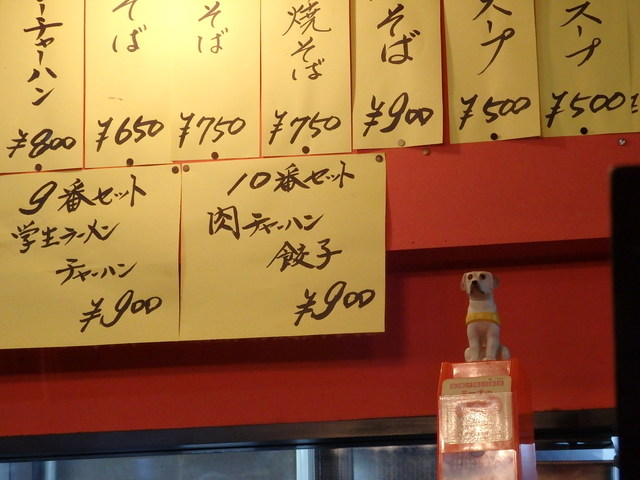 ーチャーハン
¥800
そば
¥650
そば
¥750
焼そば
¥750
そば
¥900
スープ
¥500
スープ
¥500
9番セット
学生ラーメン
チャーハン
¥900
10番セット
肉チャーハン
餃子
¥900